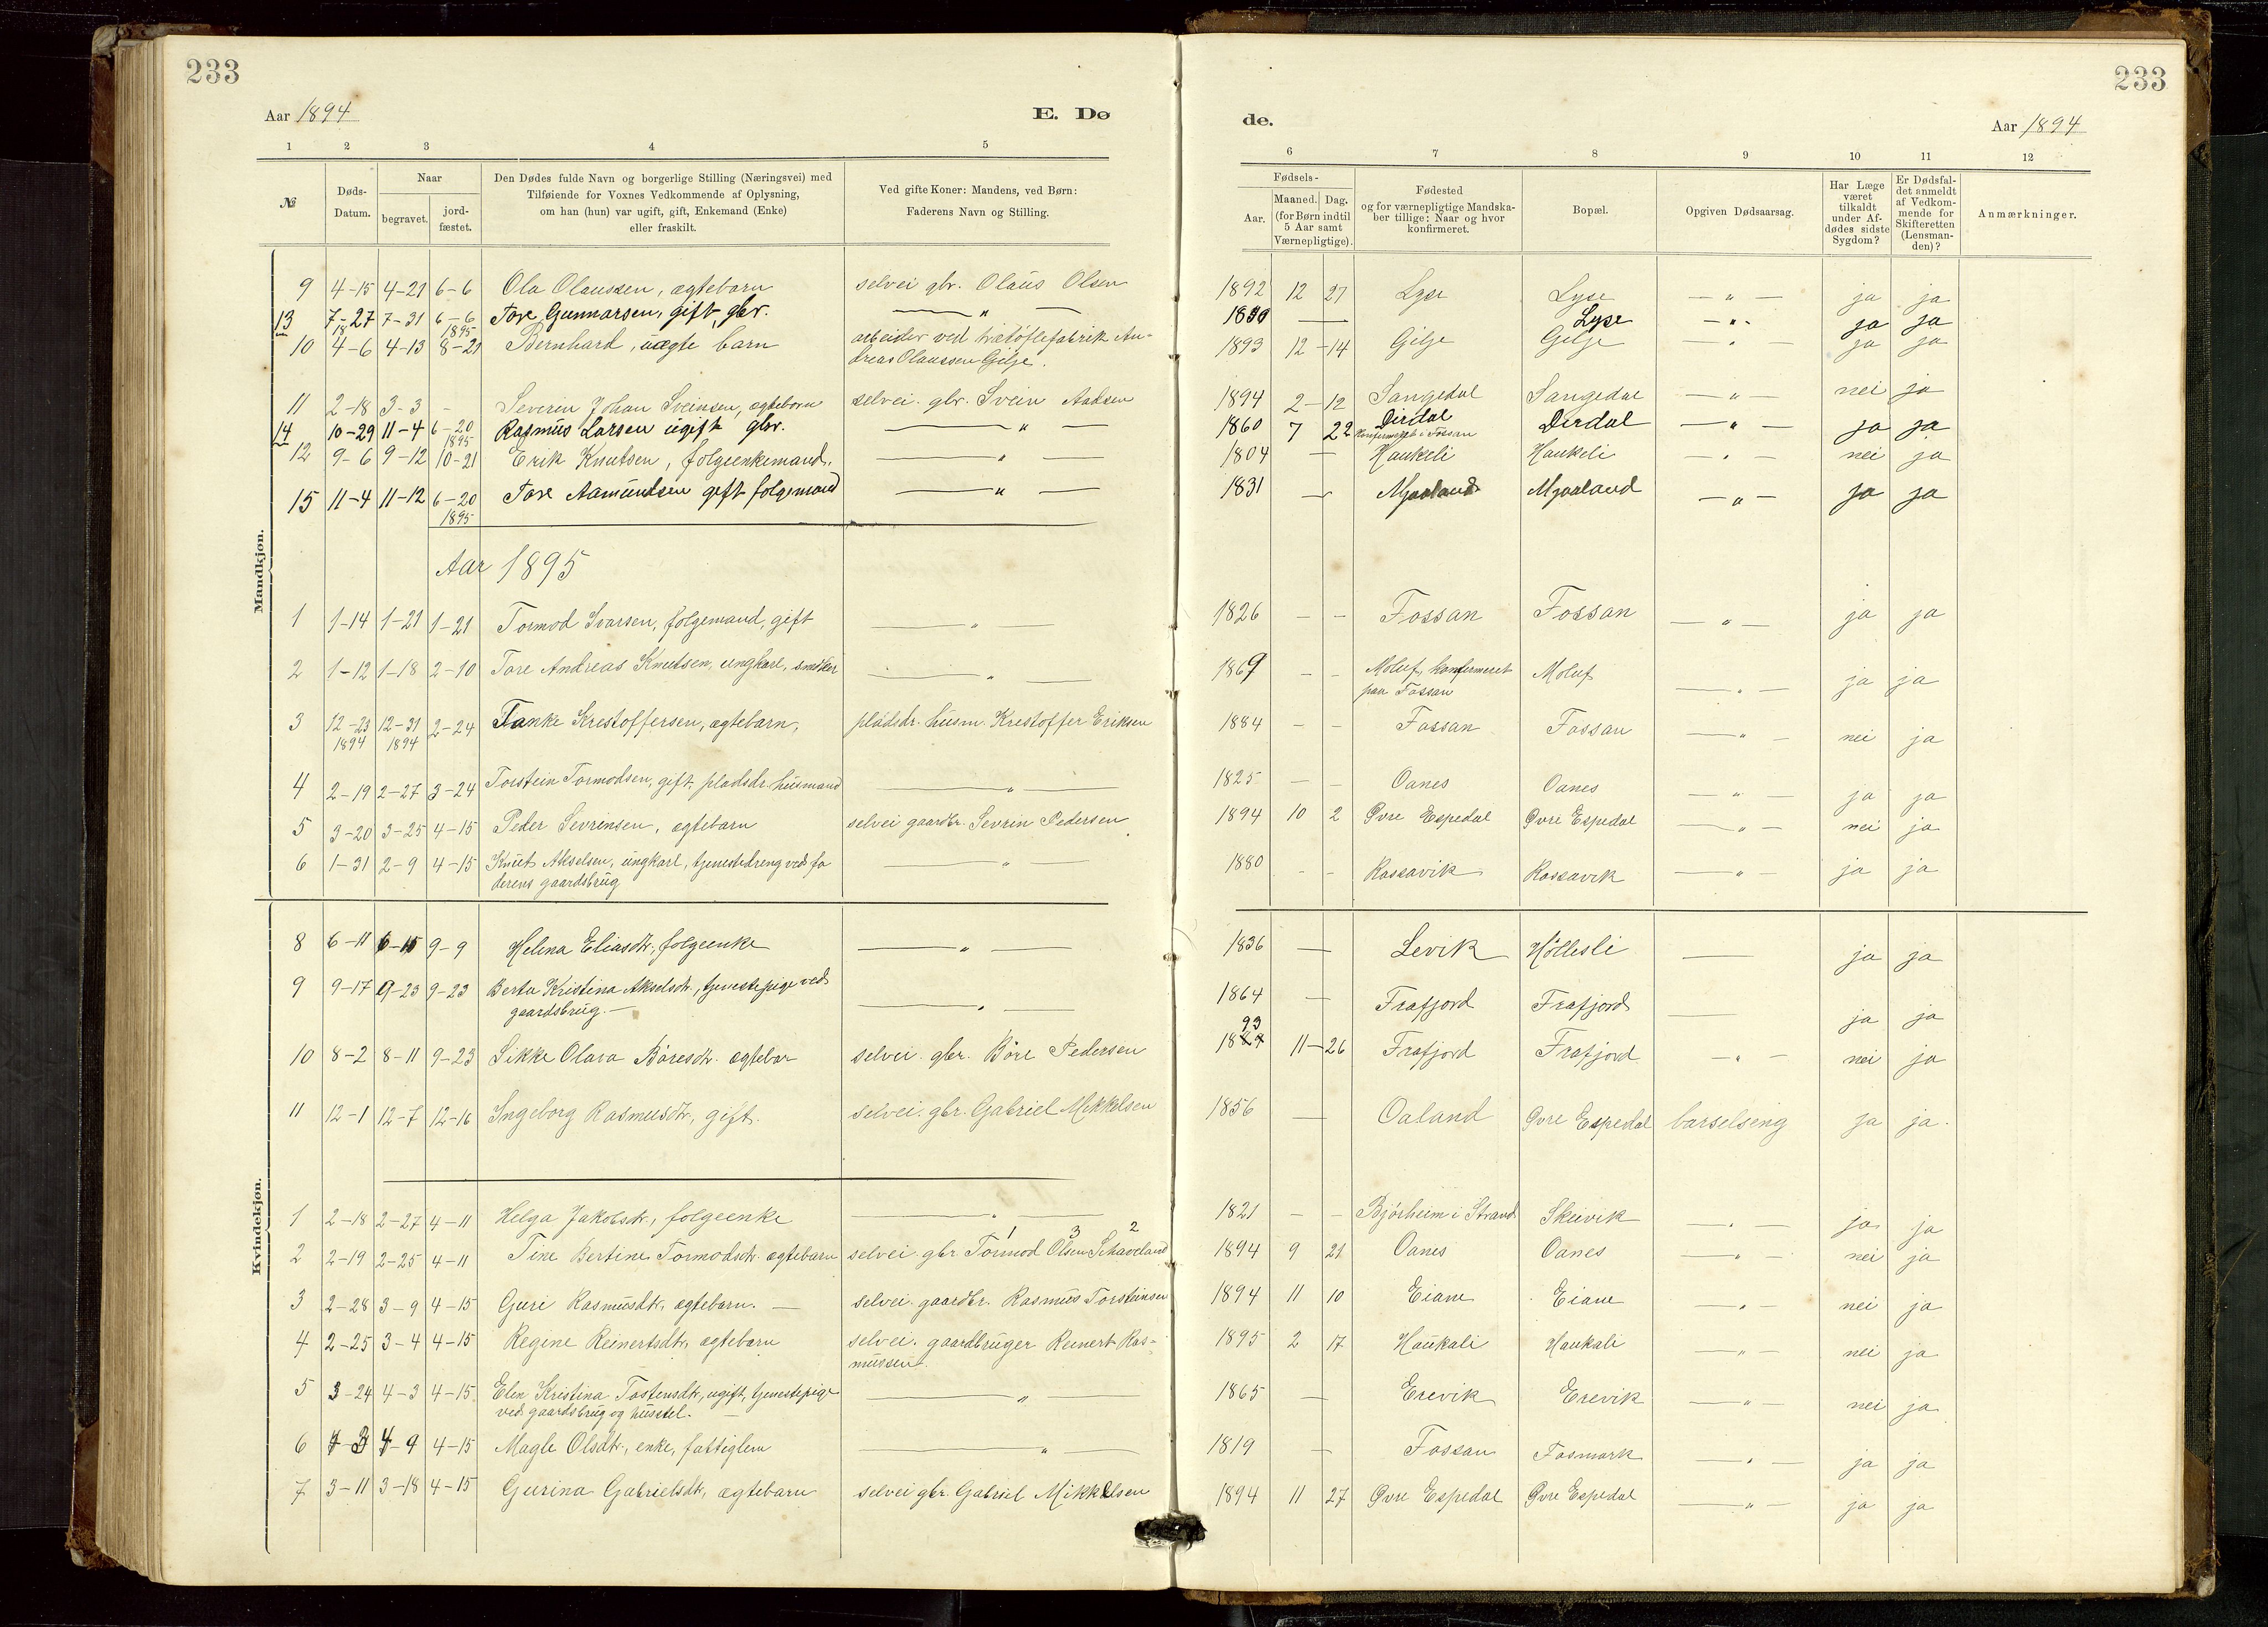 233
233
Aar 1894
E. Dø
de.
Aar 1894
1 2 3 4 5
6 7 8 9 10 11 12
№
Døds-
Datum.
Naar
begravet.
jord-
fæstet.
Den Dødes fulde Navn og borgerlige Stilling (Næringsvei) med
Tilføiende for Voxnes Vedkommende af Oplysning,
om han (hun) var ugift, gift, Enkemand (Enke)
eller fraskilt.
Ved gifte Koner: Mandens, ved Børn:
Faderens Navn og Stilling.
Fødsels-
Aar.
Maaned. Dag.
(for Børn indtil
5 Aar samt
Værnepligtige).
Fødested
og for værnepligtige Mandska-
ber tillige: Naar og hvor
konfirmeret.
Bopæl.
Opgiven Dødsaarsag.
Har Læge
været
tilkaldt
under Af-
dødes sidste
Sygdom?
Er Dødsfal-
det anmeldt
af Vedkom-
mende for
Skifteretten
(Lensman-
den)?
Anmærkninger.
Mandkjøn.
9 4-15 4-21 6-6 Ola Olaussen, ægtebarn selvei gbr. Olaus Olsen 1892 12 27 Lyse Lyse — „ — ja ja
13 7-27 7-31 6-6 1895 Tore Gunnarsen, gift, gbr. — „ — Lyse — „ - ja ja
10 4-6 4-13 8-21 Bernhard, uægte barn arbeider ved trætøflefabrik An-
dreas Olaussen Gilje. 1893 12-14 Gilje Gilje — „ — ja ja
11 2-18 3-3 - Severin Johan Sveinsen, ægtebarn selvei. gbr. Svein Aadsen 1894 2-12 Sangedal Sangedal — „ — nei ja
14 10-29 11-4 6-20 1895 Rasmus Larsen ugift gbr. — „ — 1860 7 22 Dirdal
Konfirmeret i Fossan Dirdal — „ — ja ja
12 9-6 9-12 10-21 Erik Knutsen, folgeenkemand. — „ — 1804 — Haukeli Haukeli — „ — nei ja
15 11-4 11-12 6-20 1895 Tore Aamundsen gift folgemand — „ — 1831 — Mjaaland Mjaaland — „ — ja ja
Aar 1895
1 1-14 1-21 1-21 Tormod Ivarsen, folgemand, gift — „ — 1826 - - Fossan Fossan — „ — ja ja
2 1-12 1-18 2-10 Tore Andreas Knutsen, ungkarl, snedker — „ — 1869 - - Moluf, konfirmeret
paa Fossan Moluf — „ — ja ja
3 12-23 1894 12-31 1894 2-24 Tanke Krestoffersen, ægtebarn, pladsdr. husm. Krestoffer Eriksen 1884 - - Fossan Fossan — „ — nei ja
4 2-19 2-27 3-24 Torstein Tormodsen, gift, pladsdr. husmand — „ — 1825 - - Oanes Oanes — „ — ja ja
5 3-20 3-25 4-15 Peder Sevrinsen, ægtebarn selvei gaardbr. Sevrin Pedersen 1894 10 2 Øvre Espedal Øvre Espedal — „ — nei ja
6 1-31 2-9 4-15 Knut Akselsen, ungkarl, tjenestedreng ved fa
derens gaardsbrug — „ — 1880 - - Rossavik Rossavik — „ — ja ja
Kvindekjøn.
8 6-11 6-15 9-9 Helena Eliasdtr., folgeenke — „ — 1836 — Levik Høllesli — ja ja
9 9-17 9-23 9-23 Berta Kristina Akselsdtr., tjenestepige ved
gaardsbrug. — — „ — 1864 — Frafjord Frafjord — ja ja
10 8-2 8-11 9-23 Sikke Olava Børesdtr. ægtebar selvei. gbr. Børe Pedersen 93 11-26 Frafjord Frafjord — „ — nei ja
11 12-1 12-7 12-16 Ingeborg Rasmusdtr, gift. selvei. gbr. Gabriel Mikkelsen 1856 — Oaland Øvre Espedal barselseng ja ja.
1 2-18 2-27 4-11 Helga Jakobsdtr., folgeenke — „ — 1821 - - Bjørheim i Strand Skeivik — „ — ja ja
2 2-19 2-25 4-11 Tine Bertine Tormodsdtr. ægtebarn selvei. gbr Tormod Olsen 1 3 2 1894 9 21 Oanes Oanes — „ — nei ja
3 2-28 3-9 4-15 Guri Rasmusdtr, ægtebarn. — selvei. gaardbr. Rasmus Torsteinsen 1894 11 10 Eiane Eiane — „ — nei ja
4 2-25 3-4 4-15 Regine Reinertsdtr, ægtebarn selvei. gaardbruger Reinert Ras-
mussen. 1895 2 17 Haukali Haukali — „ — nei ja
5 3-24 4-3 4-15 Elen Kristina Tostensdtr, ugift, tjenestepige
ved gaardsbrug og husstel. — — „ — 1865 — Erevik Erevik — „ — nei ja
6 4-9 4-15 Magle Olsdtr., enke, fattiglem — „ — 1819 — Fossan Fosmark — „ — ja ja
7 3-11 3-18 4-15 Gurina Gabrielsdtr, ægtebarn selvei gbr. Gabriel Mikkelsen 1894 11 27 Øvre Espedal Øvre Espedal — „ — ja ja